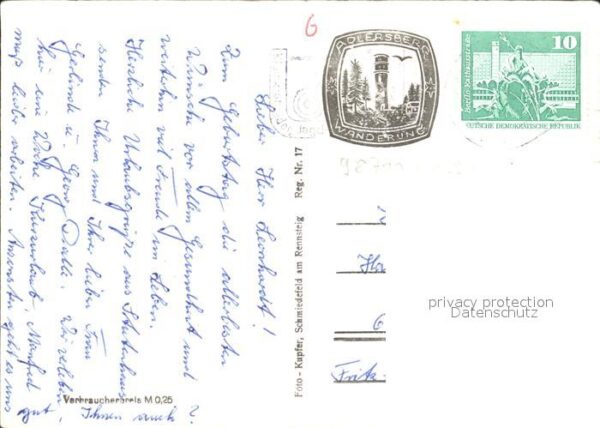 Lieber Herr Lenhardt!
Zum Geburtstag die allerbesten
Wünsche vor allem Gesundheit und
weiterhin viel Freude im Leben.
Herzliche Urlaubsgrüße aus
senden Ihnen und Ihrer lieben Frau
Gerlinde u. Georg Wir verleben
hier eine Woche Kurzurlaub, Manfred
muß leider arbeiten. Ansonsten geht es uns
gut, Ihnen auch ?
Verbraucherpreis M 0,25
Foto - Kupfer, Schmiedefeld am Rennsteig Reg. Nr. 17
6
ADLERSBERG
WANDERUNG
10
Berlin, Rathausstraße
DEUTSCHE DEMOKRATISCHE REPUBLIK
privacy protection
Datenschutz
6
Fritz